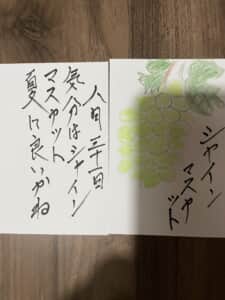 八月三十一日
気分はシャイン
マスカット
夏に良いかね
シャイン
マスカ
ット